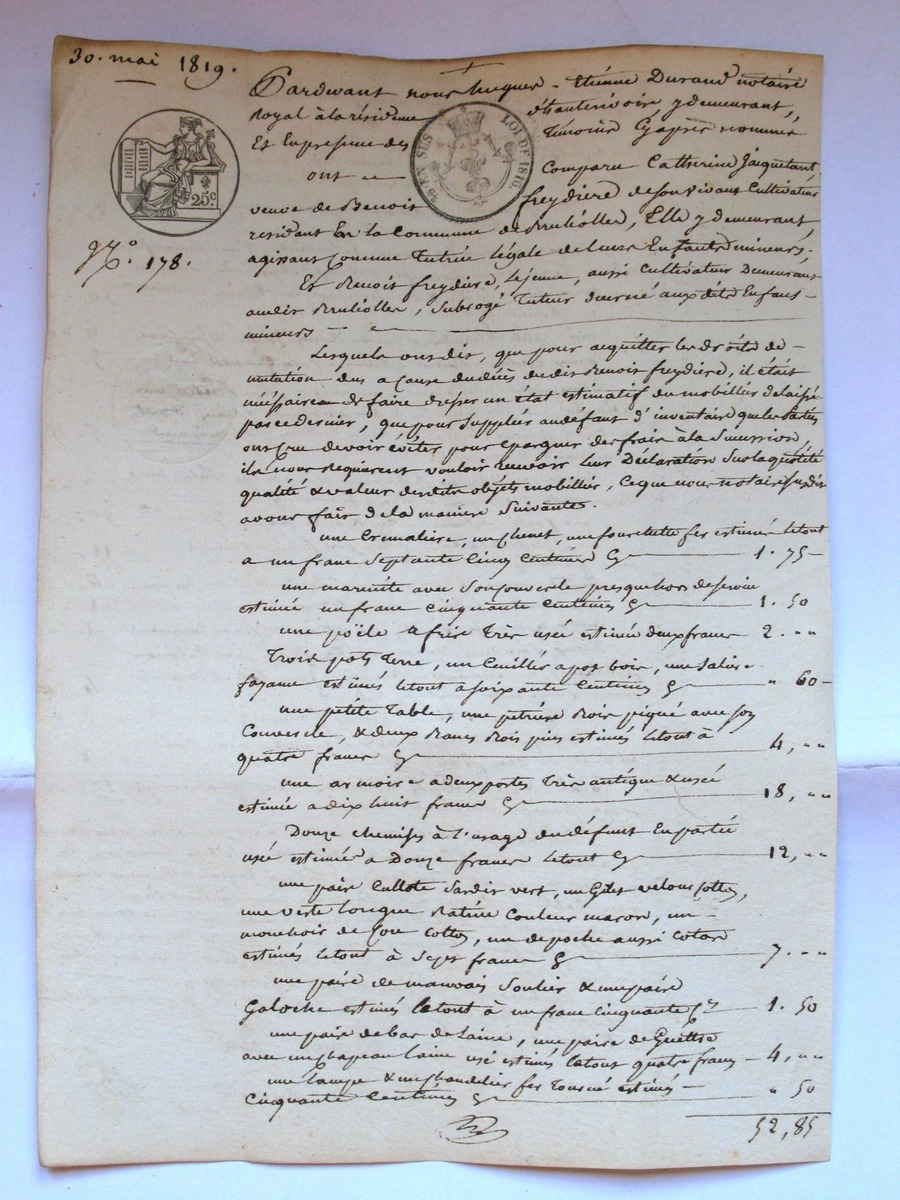 30. mai 1819.
Pardvant nous Jucques - Etienne Durand notaire
Royal à la résidence d'hauterivoire, y demeurant,
Et En presence des temoins Ɣ apres nommés
ont comparu Catherine Jacquetant,
veuve de Benoit freydiere de son vivant Cultivateur
residant En la Commune de Brulliolles, Elle y demeurant,
agissant Comme Tutrice légale de leurs Enfants mineurs;
Et Benoit freydiere, le jeune, aussi Cultivateur Demeurant
audit Brulliolles, subrogé Tuteur décerné aux dits Enfans
mineurs
Lesquels ont dit, que pour acquitter les droits de
mutation dus a Cause du décès dudit Benoit freydiere, il était
nécéssaire de faire dresser un état estimatif du mobillier delaissé
par ce dernier, que pour suppléer au défaut d'inventaire que les Parties
ont cru devoir éviter pour épargner des frais à la Succession,
ils nous Requierent vouloir recevoir leur Déclaration sur la quotité
qualité & valeur desdits objets mobilliers, Ce que nous notaire susdit
avons fait de la maniere Suivante.
une Cremaliere, un chenet, une fourchette fer estimés le tout
a un franc septante Cinq Centimes 1. 75
une marmite avec son Couvercle presque hors de service
estimée un franc Cinquante Centimes 1. 50
une poële a frire Très usée estimée deux francs 2. "
Trois pots Terre, un Cuillér a pot bois, une saliere
fayance estimés le tout à soixante Centimes " 60
une petite Table, une petriere Bois piqué avec son
Couvercle, & deux Bancs Bois pins estimés le tout à
quatre francs 4, "
une armoire a deux portes Très antique & usée
estimée a dix huit francs 18, "
Douze chemises à l'usage du défunt En partie
usé estimées a Douze francs le tout 12, "
une paire Cullote Sardis vert, un Gilet velour Cotton,
une veste longue Ratine Couleur maron, un
mouchoir de Cou Cotton, un de poche aussi Coton
estimés le tout à sept francs 7. "
une paire de mauvais Soulier & une paire
Galoche estimés le tout à un franc Cinquante Cs 1. 50
une paire de bas de laine, une paire de Guettre
avec un chapeau laine usé estimés le tout quatre francs 4, "
une lampe & un chandelier fer Tourné estimés
Cinquante Centimes " 50
52, 85
25c
EN SUS
LOI DE 1816
No. 178.